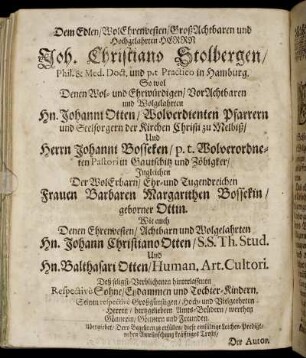 Dem Edlen/ WolEhrenvesten/ GroßAchtbaren und
Hochgelahrten HERRN
Joh. Christiano Stolbergen/
Phil. & Med. Doct. und p.t. Practico in Hamburg.
So wol
Denen Wol- und Ehrwürdigen/ VorAchtbaren
und Wolgelahrten
Hn. Johanni Otten/ Wolverdienten Pfarrern
und Seelsorgern der Kirchen Christi zu Melbiß/
Und
Herrn Johanni Bosseken/ p. t. Wolverordne-
ten Pastori in Gautschitz und Zöbigker/
Ingleichen
Der WolErbarn/ Ehr- und Tugendreichen
Frauen Barbaren Margarithen Bosseckin/
geborner Ottin.
Wie auch
Denen Ehrenvesten/ Achtbarn und Wolgelahrten
Hn. Johann Christiano Otten/ S.S. Th. Stud.
Und
Hn. Balthasari Otten/ Human. Art. Cultori.
Deß seligst-Verblichenen hinterlassenen
Respectivè Söhne/ Eydammen und Tochter-Kindern.
Seinen respectivè Großgünstigen/ Hoch- und Vielgeehrten
Herren/ hertzgeliebten Ambts-Brüdern/ werthen
Gönnern und Freunden.
der Autor.